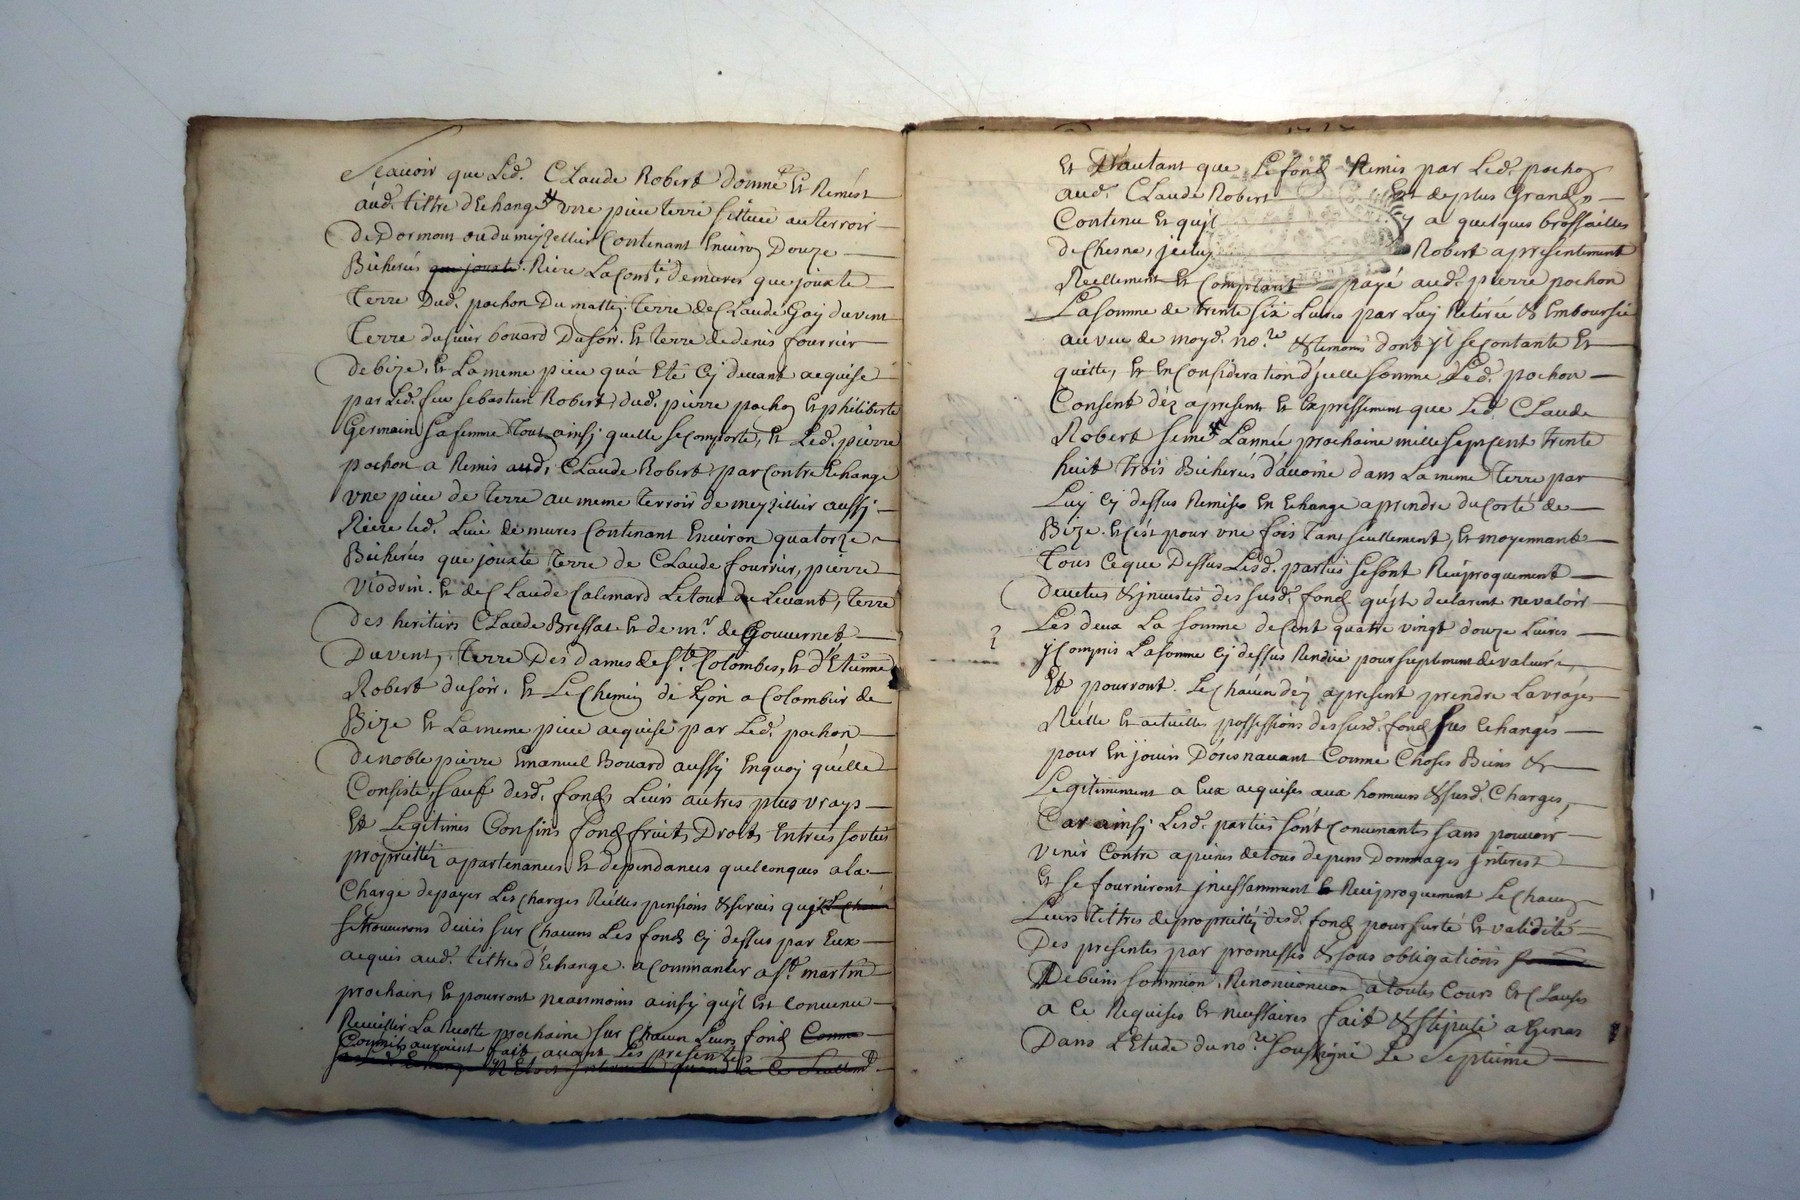 Scavoir que Led. Claude Robert donne Et Remest
aud. tiltre d'Echange une piece terre scittuee au terroir
de Dormon ou du meyzellier Contenant Environ Douze
Bicherées que jouxte Riere La Comté de mures que jouxte
Terre Dud. pochon Du matte; Terre de Claude Goy du vent
Terre du sieur bouard Du soir. Et terre de denis fourrier
de bize, Et La meme piece qu'a Eté Cy devant acquise
par Led. feu sebastien Robert dud. pierre pochon Et philiberte
Germain sa femme Tout ainsy quelle se comporte, Et Led. pierre
pochon a Remis aud. Claude Robert par contre Echange
vne piece de Terre au meme terroir de meyzillier aussy
Riere led. Lieu de mures Contenant Environ quatorze
Bicherées que jouxte Terre de Claude fourrier, pierre
Viodrin. Et de Claude Calemard Le tout du Levant, Terre
des heritiers Claude Bressat Et de mr. de Gouvernet
Du vent, Terre Des dames de Ste. Colombes, Et d'Etienne
Robert du soir. Et Le Chemin de Lyon a Colombier de
Bize Et La meme piece acquise par Led. pochon
de noble pierre Emanuel Bouard aussy En quoy qu'elle
Consiste, sauf desd. fonds Leurs autres plus vrays
Et Legitimes Confins fond fruits, Droits, Entrées sorties
proprietté apartenances Et dependances quelconques a la
Charge de payer Les charges Réelles pensions & servis qu'jl
se trouverons deües sur Chacuns Les fonds Cy dessus par Eux
acquis aud. tiltre d'Echange. a Commancer a St. martin
prochain, Et pourront neanmoins ainsy qu'jl Est Convenu
Recueillir La Recolte prochaine sur Chacun Leurs fond Comme
auroient fait avant Les presentes
Et D'autant que Le fond Remis par Led. pochon
aud. Claude Robert Est de plus Grande
Contenu Et qu'jl y a quelques brossailles
de Chesne, jceluy Robert a presentement
Reellement Et Comptant payé aud. pierre pochon
La somme de trente six Livres par Luy Retirée & Emboursée
au veu de moyd. nore. & temoins dont jl se contante Et
quitte, Et En Consideration d'jcelle somme Led. pochon
Consent dez a present Et Expressement que Led. Claude
Robert seme L'année prochaine mille sept cent trente
huit Trois Bicherées d'avoine dans La meme Terre par
Luy Cy dessus Remise En Echange a prendre du Corté de
Bize. Et c'est pour une fois Tant seullement, Et moyennant
Tous Ce que Dessus Lesd. parties se sont Reciproquement
devetues & jnvesties des susd. fond qu'jls declarent ne valoir
Les deux La somme de Cent quatre vingt douze Livres
y Compris La somme Cy dessus Rendue pour suplement de valeur
Et pourront Le chacun dez a present prendre La vraye
Réelle Et actuelles possessions des susd. fond sus Echangés
pour En jouir Doresnavant Comme Choses Biens &
Legitimement a Eux acquises aux honneurs & susd. Charges,
Car ainsy Lesd. parties sont Convenantes sans pouvoir
venir Contre a peines de tous depens Dommages jnterest
Et se fourniront jncessamment Et Reciproquement Le chacun
Leurs Tiltres de proprietté desd. fond pour surté Et validité
Des presentes par promesses & sous obligations
De biens soumission, Renonciation a toutes Cours Et Clauses
a Ce Requises Et necessaires fait & stipulé a Genas
Dans L'Etude du nore. soussigné Le septieme